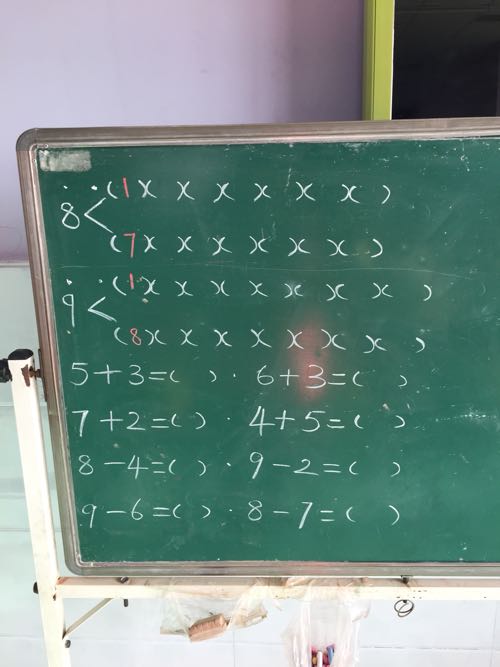 8 < (1)( )( )( )( )( )( )
(7)( )( )( )( )( )( )
9 < (1)( )( )( )( )( )( )( )
(8)( )( )( )( )( )( )( )
5+3=( ). 6+3=( )
7+2=( ). 4+5=( )
8-4=( ). 9-2=( )
9-6=( ). 8-7=( )